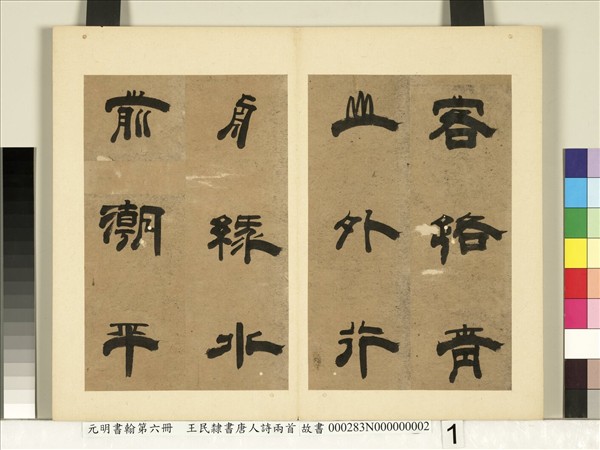 客路青
山外行
舟綠水
前潮平
元明書翰第六冊 王民隸書唐人詩兩首 故書 000283N000000002
1